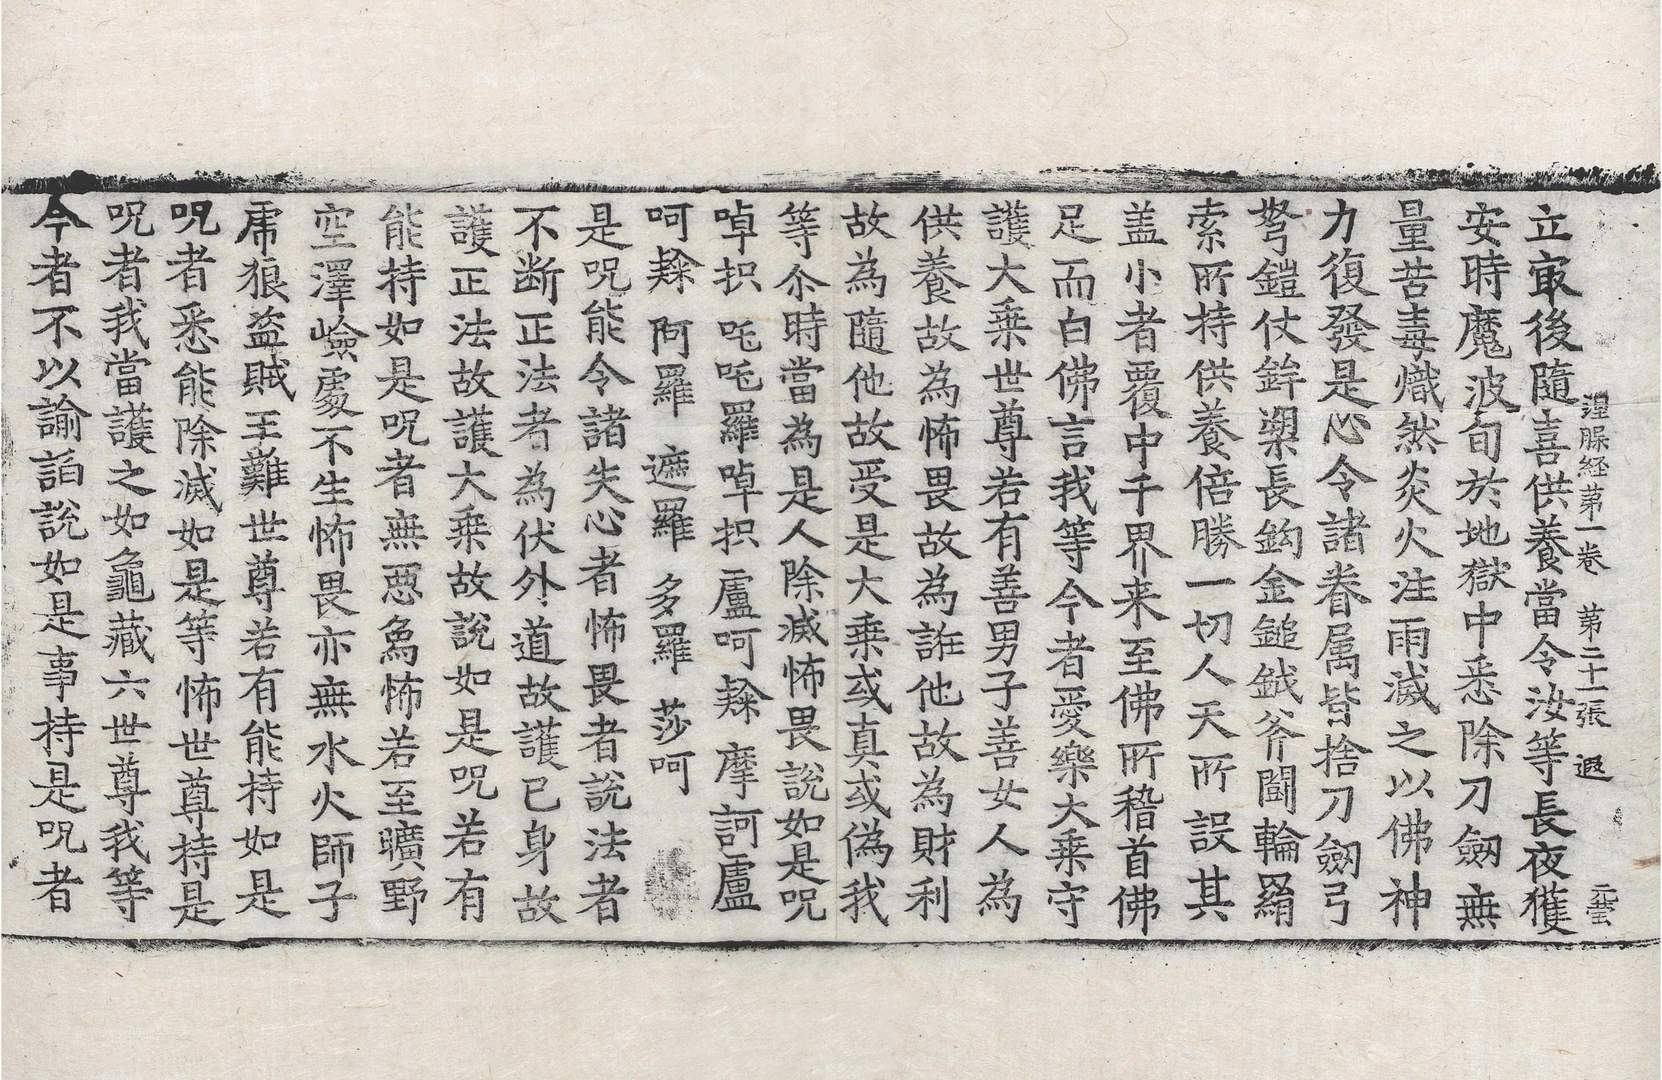 涅槃経第一卷　第二十一張　遐　元
立冣後隨喜供養當令汝等長夜獲
安時魔波旬於地獄中悉除刀劒無
量苦毒熾然炎火注雨滅之以佛神
力復發是心令諸眷属皆捨刀劒弓
弩鎧仗鉾槊長鈎金鎚鉞斧鬪輪羂
索所持供養倍勝一切人天所設其
盖小者覆中千界来至佛所稽首佛
足而白佛言我等今者愛樂大乗守
護大乗世尊若有善男子善女人為
供養故為怖畏故為誑他故為財利
故為隨他故受是大乗或真或偽我
等尒時當為是人除滅怖畏說如是呪
啅抧　吒吒羅啅抧　盧呵䨲　摩訶盧
呵䨲　阿羅　遮羅　多羅　莎呵
是呪能令諸失心者怖畏者說法者
不断正法者為伏外道故護已身故
護正法故護大乗故說如是呪若有
能持如是呪者無惡象怖若至曠野
空澤嶮處不生怖畏亦無水火師子
虎狼盜賊王難世尊若有能持如是
呪者悉能除滅如是等怖世尊持是
呪者我當護之如龜藏六世尊我等
今者不以諭謟說如是事持是呪者